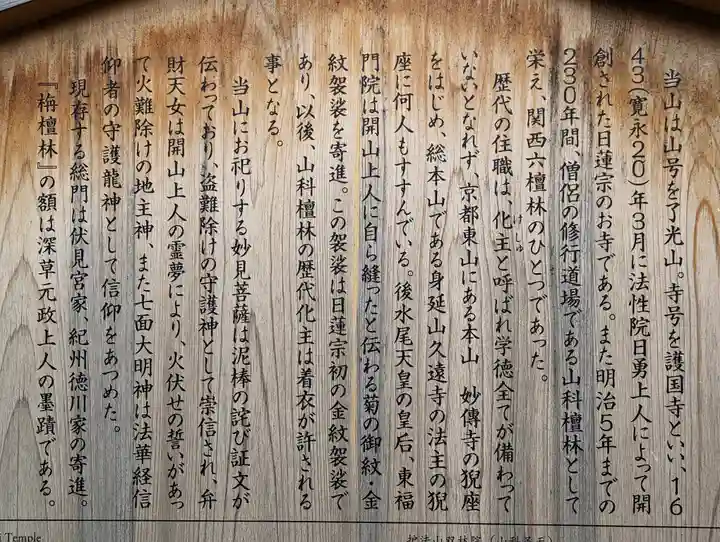 当山は山号を了光山。寺号を護国寺といい、16
43(寛永20)年3月に法性院日勇上人によって開
創された日蓮宗のお寺である。また明治5年までの
230年間、僧侶の修行道場である山科檀林として
栄え、関西六檀林のひとつであった。
歴代の住職は、化主と呼ばれ学徳全てが備わって
けしゅ
いないとなれず、京都東山にある本山 妙傳寺の猊座
をはじめ、総本山である身延山久遠寺の法主の猊
座に何人もすすんでいる。後水尾天皇の皇后、東福
門院は開山上人に自ら縫ったと伝わる菊の御紋・金
紋袈裟を寄進。この袈裟は日蓮宗初の金紋袈裟で
あり、以後、山科檀林の歴代化主は着衣が許される
事となる。
当山にお祀りする妙見菩薩は泥棒の詫び証文が
伝わっており、盗難除けの守護神として崇信され、弁
財天女は開山上人の霊夢により、火伏せの誓いがあっ
て火難除けの地主神、また七面大明神は法華経信
仰者の守護龍神として信仰をあつめた。
現存する総門は伏見宮家、紀州徳川家の寄進。
『栴檀林』の額は深草元政上人の墨蹟である。
Temple